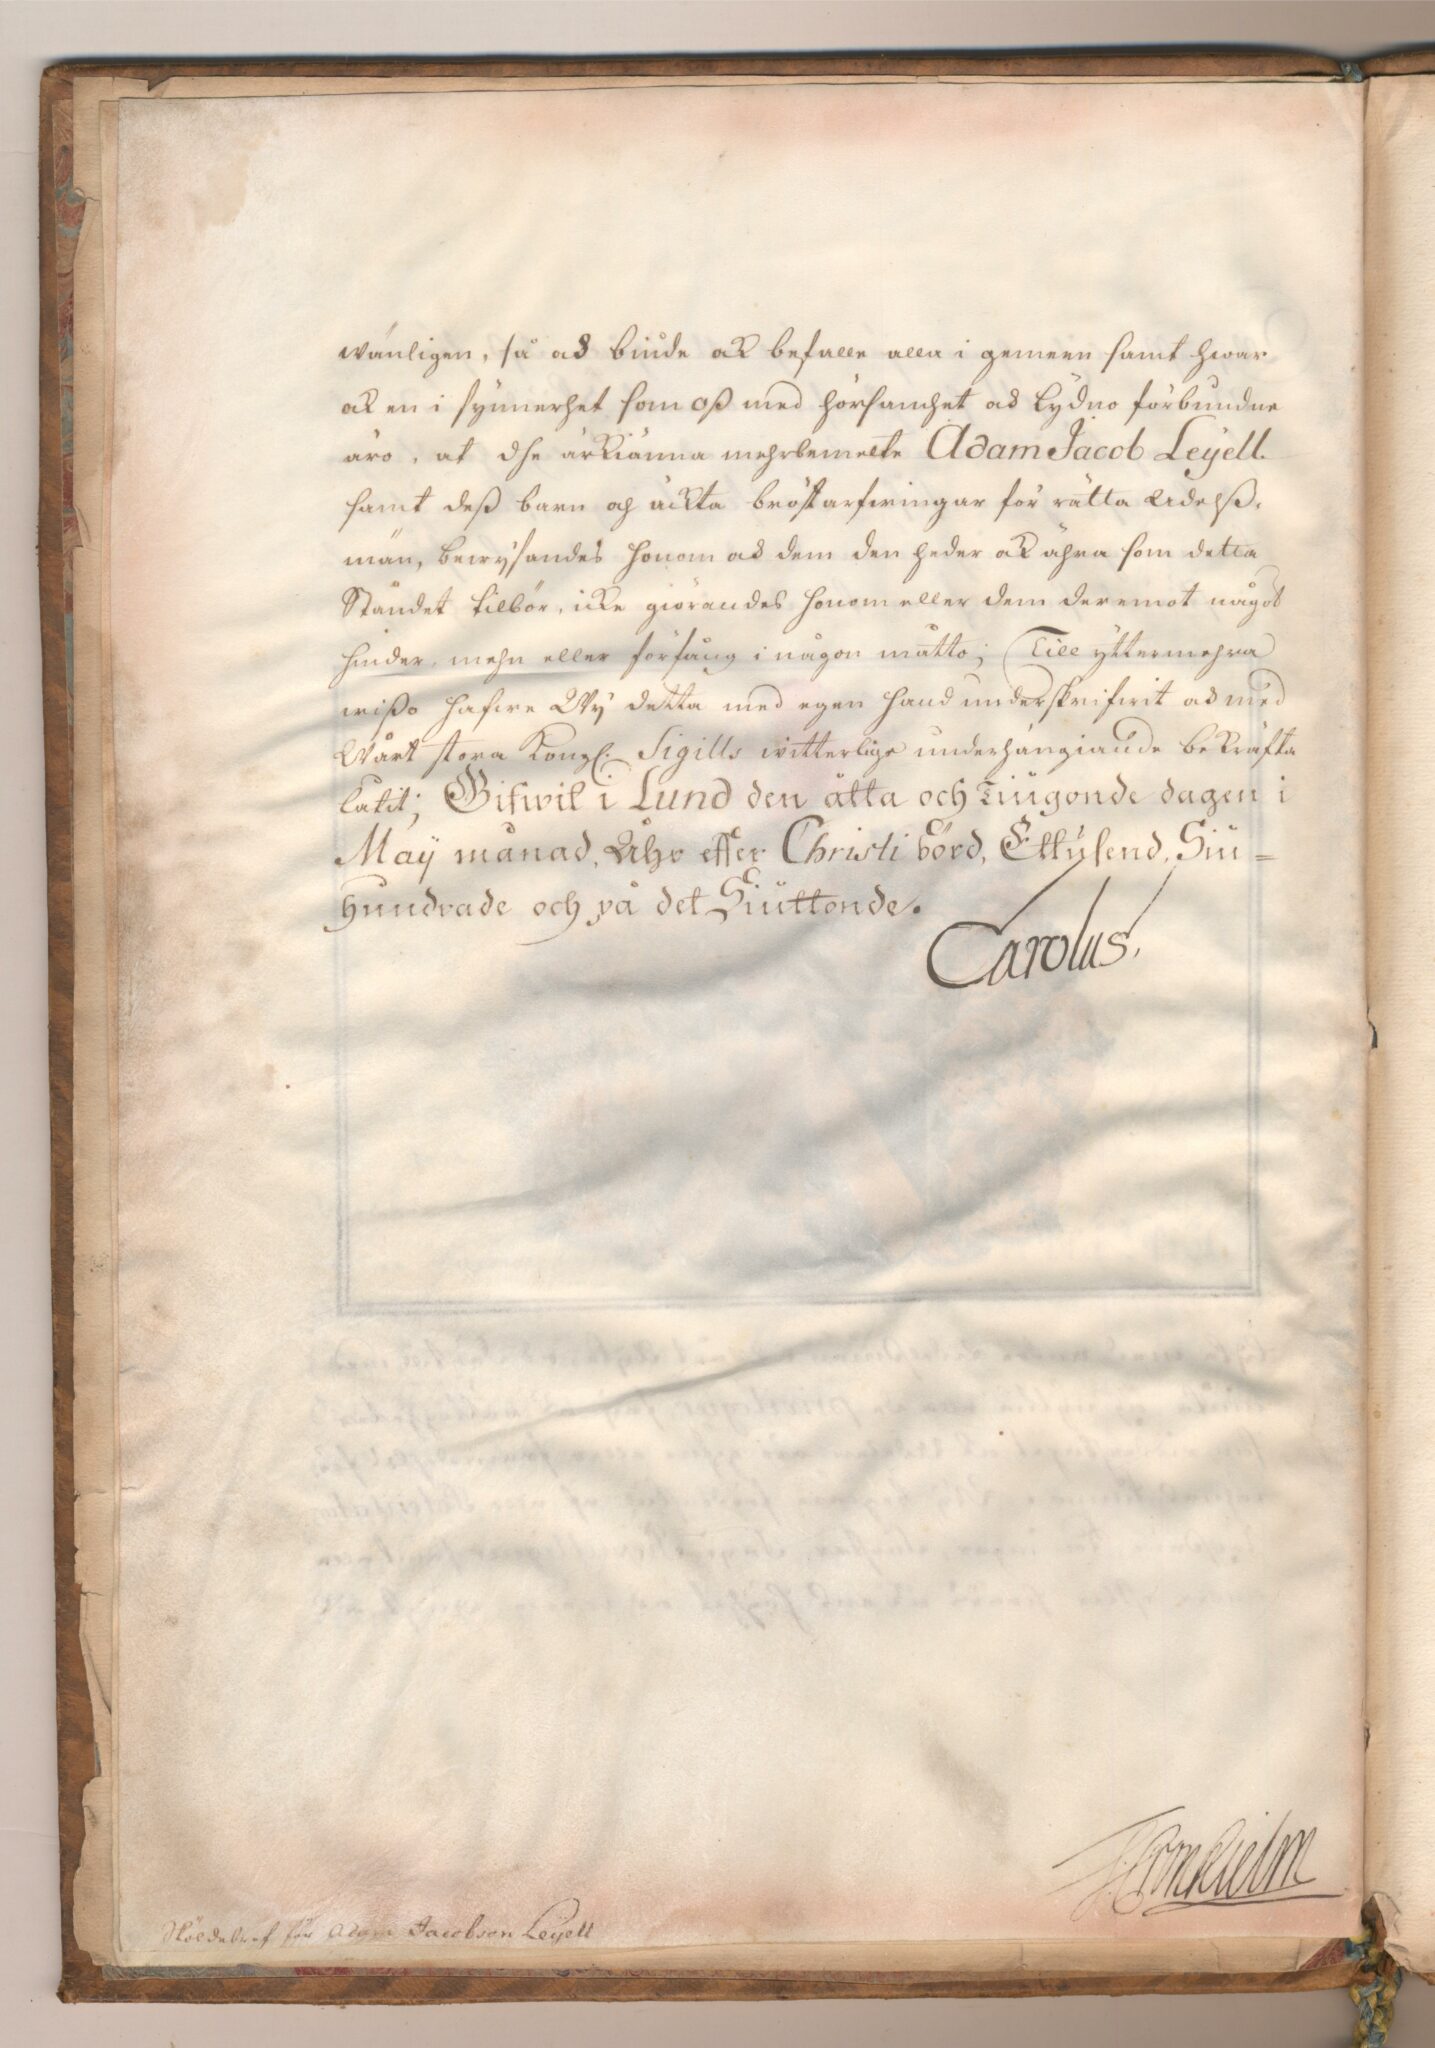 wänligen, så ock biude ock befalle alla i gemeen samt hwar
ock en i synnerhet som oß med hörsamhet ock lydno förbundne
äro, at dhe ärkiänna mehrbemelte Adam Jacob Leyell.
samt deß barn och äckta bröstarfwingar för rätta Adelß-
män, bewysandes honom ock dem den heder ock ähra som detta
Ståndet tilbör, icke giörandes honom eller dem deremot något
hinder, mehn eller förfång i någon måtto; Till yttermehra
wißo hafwe Wy detta med egen hand underskrifwit ock med
Wårt stora Kongl. Sigills witterlige underhängiande bekräfta
låtit; Gifwit i Lund den åtta och Tiugonde dagen i
Maÿ månad, Åhr effter Christi börd, Ettusend, Siu=
hundrade och på det Siuttonde.
Carolus.
Cronhielm
Sköldebref för Adam Jacobson Leyell